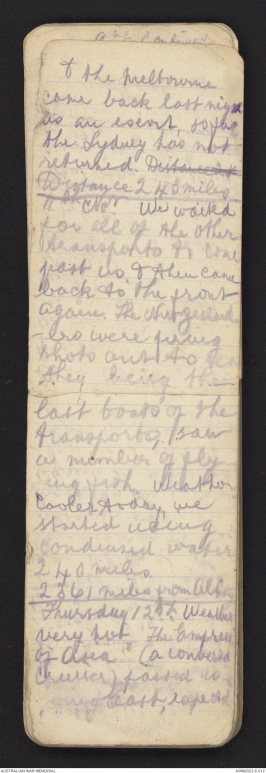 & the Melbourne
came back last night
as an escort,
the Sydney has not
returned.
Distance 243 miles
We waited
for all of the other
transports to come
past us, & then came
back to the front
again. The New Zealande
-ers were firing
shots out to sea
they being the
last boats of the
transports, I saw
a member of fly
-ing fish. Weather
cooler today, we
started using
condensed water
240 miles
2361 miles from Albany
Thursday 12th. Weather
very hot. The Empress
of Asia (a converted
Cruiser) passed us
going East,
AUSTRALIAN WAR MEMORIAL